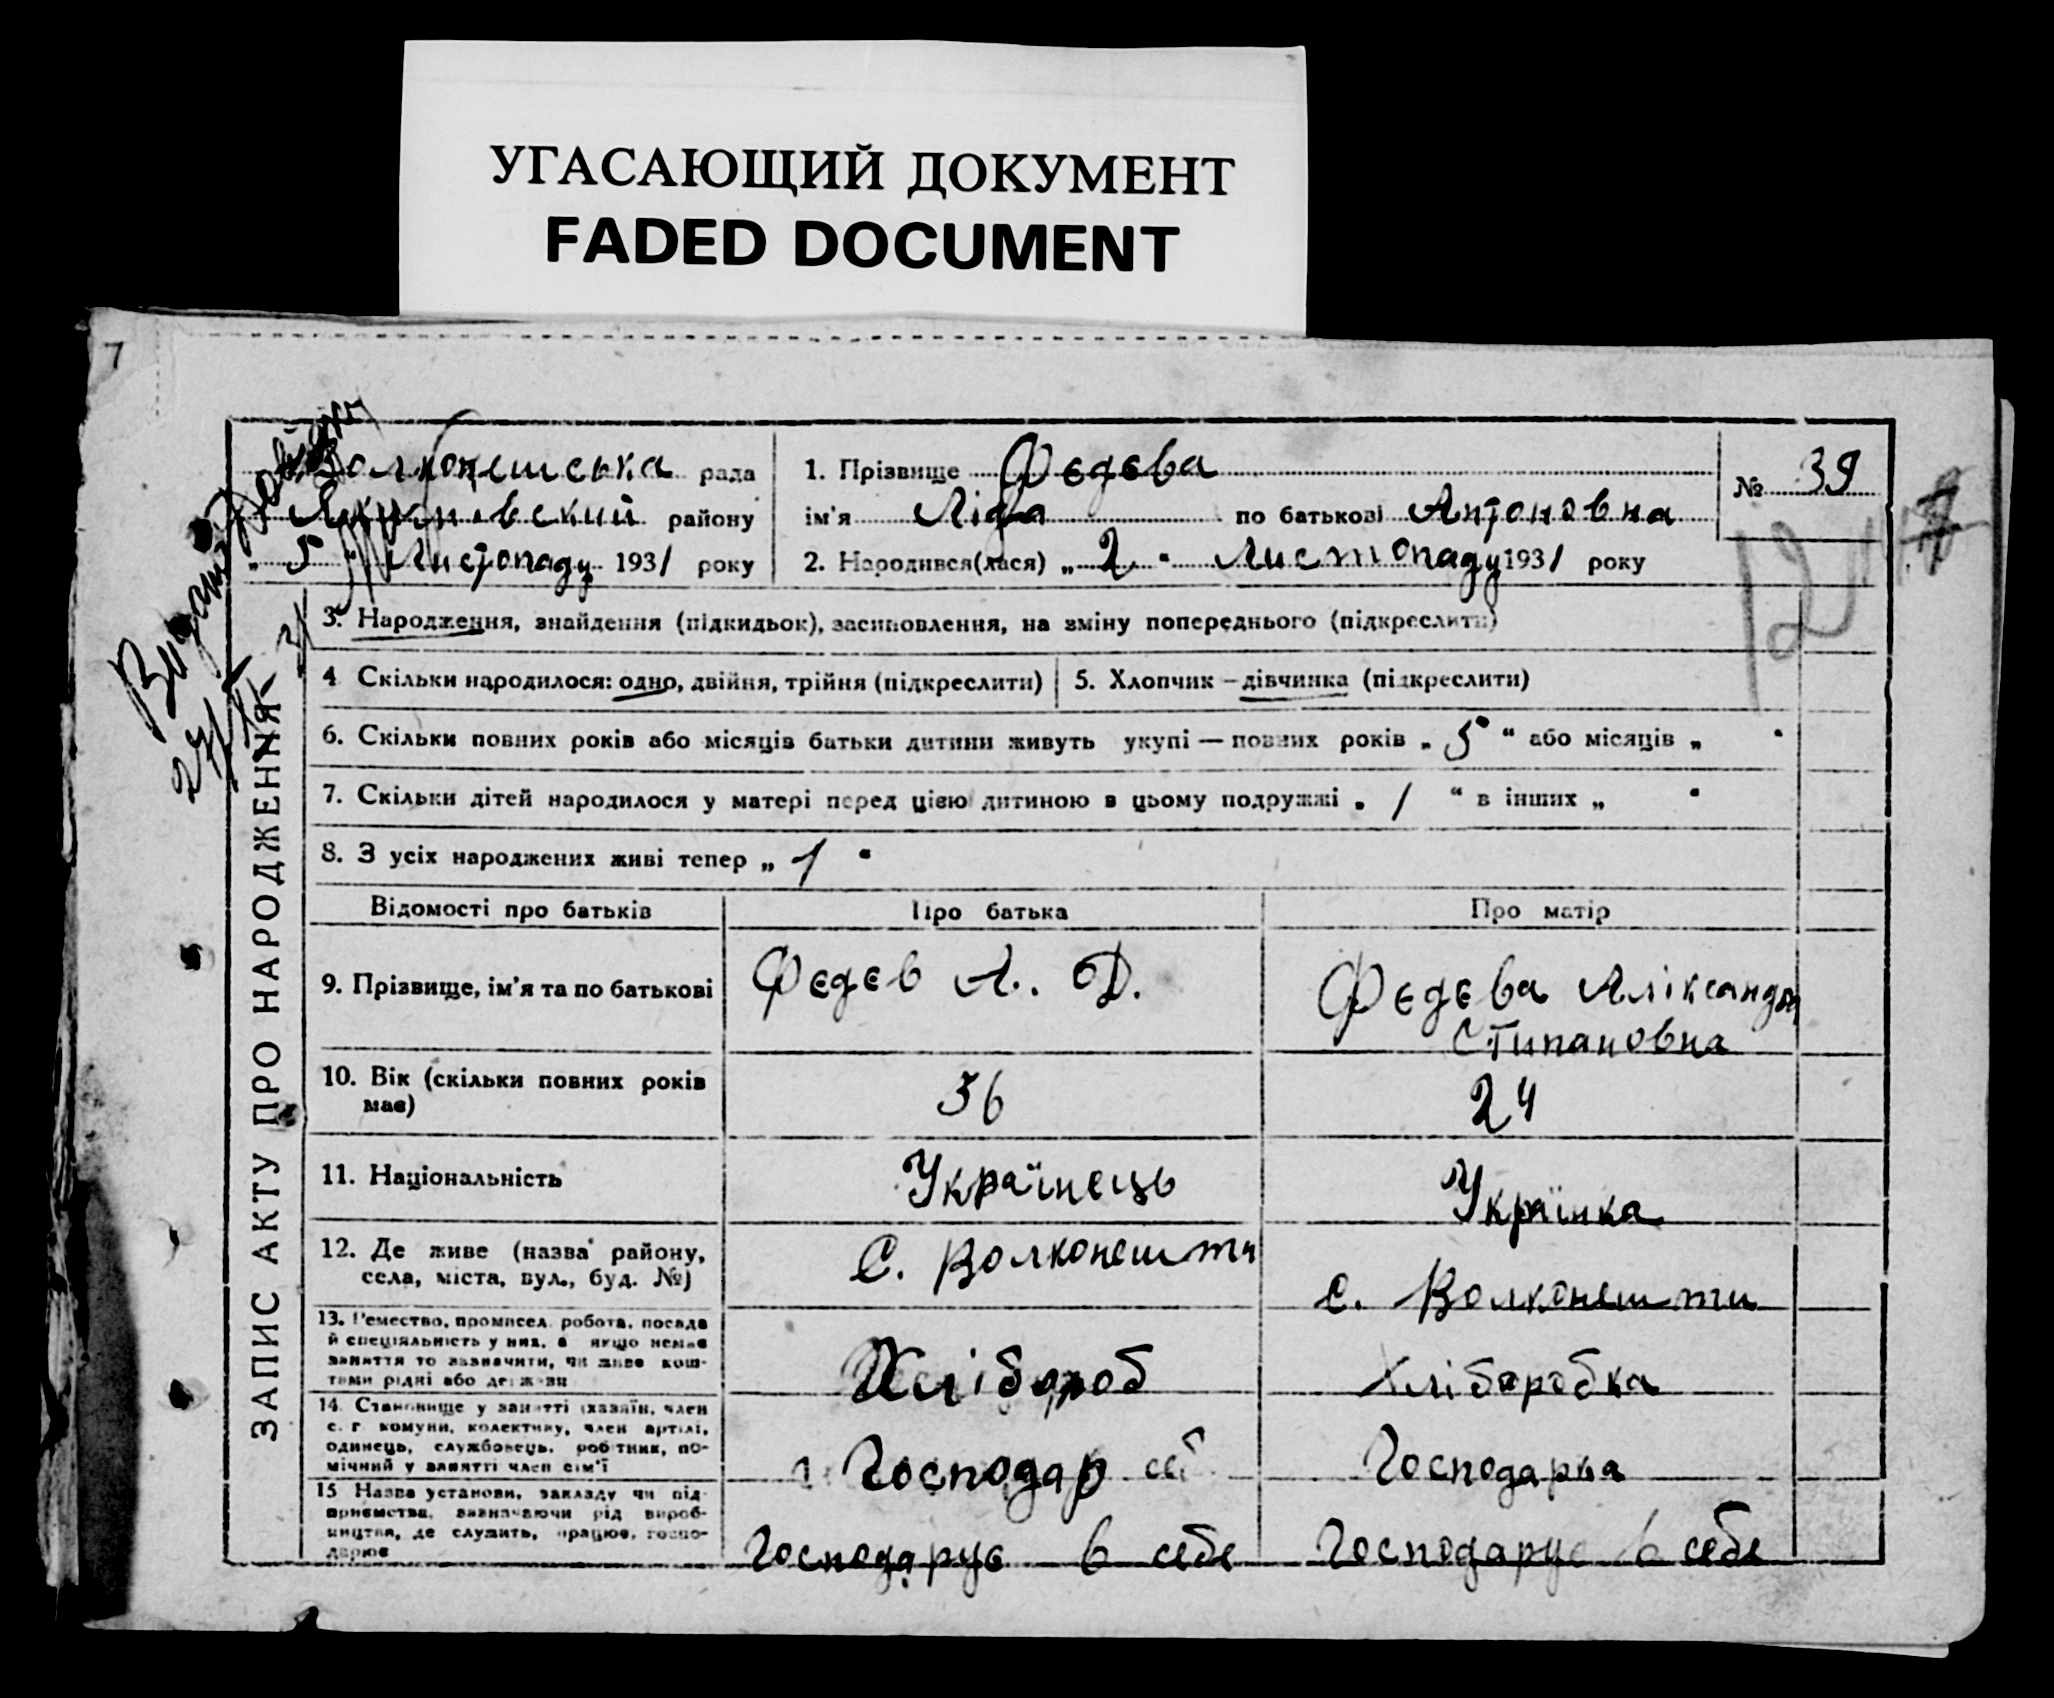 УГАСАЮЩИЙ ДОКУМЕНТ
FADED DOCUMENT
7
Волконешська рада
району
„ 5 “ Листопаду 1931 року
1. Прізвище Фєдєва
ім'я Ліда по батькові Антоновна
2. Народився(лася) „ 2 “ Листопаду 1931 року
№ 39
12
Видано
ЗАПИС АКТУ ПРО НАРОДЖЕННЯ
3. Народження, знайдення (підкидьок), засиновлення, на зміну попереднього (підкреслити)
4 Скільки народилося: одно, двійня, трійня (підкреслити)
5. Хлопчик – дівчинка (підкреслити)
6. Скільки повних років або місяців батьки дитини живуть укупі — повних років „ 5 “ або місяців „ “
7. Скільки дітей народилося у матері перед цією дитиною в цьому подружжі „ 1 “ в інших „ “
8. З усіх народжених живі тепер „ 1 “
Відомості про батьків
Про батька
Про матір
9. Прізвище, ім'я та по батькові
Фєдєв А. Д.
Фєдєва Аліксандра
Стипановна
10. Вік (скільки повних років
має)
36
24
11. Національність
Українєць
Українка
12. Де живе (назва району,
села, міста, вул., буд. №)
С. Волконешти
с. Волконешти
13. Ремество, промисел, робота, посада
й спеціяльність у них, а якщо немає
заняття то зазначити, чи живе кош-
тами рідні або держави
Хлібороб
Хліборобка
14. Становище у занятті (хазяїн, член
с. г. комуни, колективу, член артілі,
одинець, службовець, робітник, по-
мічний у занятті член сім'ї
Господар
Господарка
15 Назва установи, закладу чи під-
приємства, зазначаючи рід вироб-
ництва, де служить, працює, госпо-
дарює
Господарує в себе
Господарує в себе